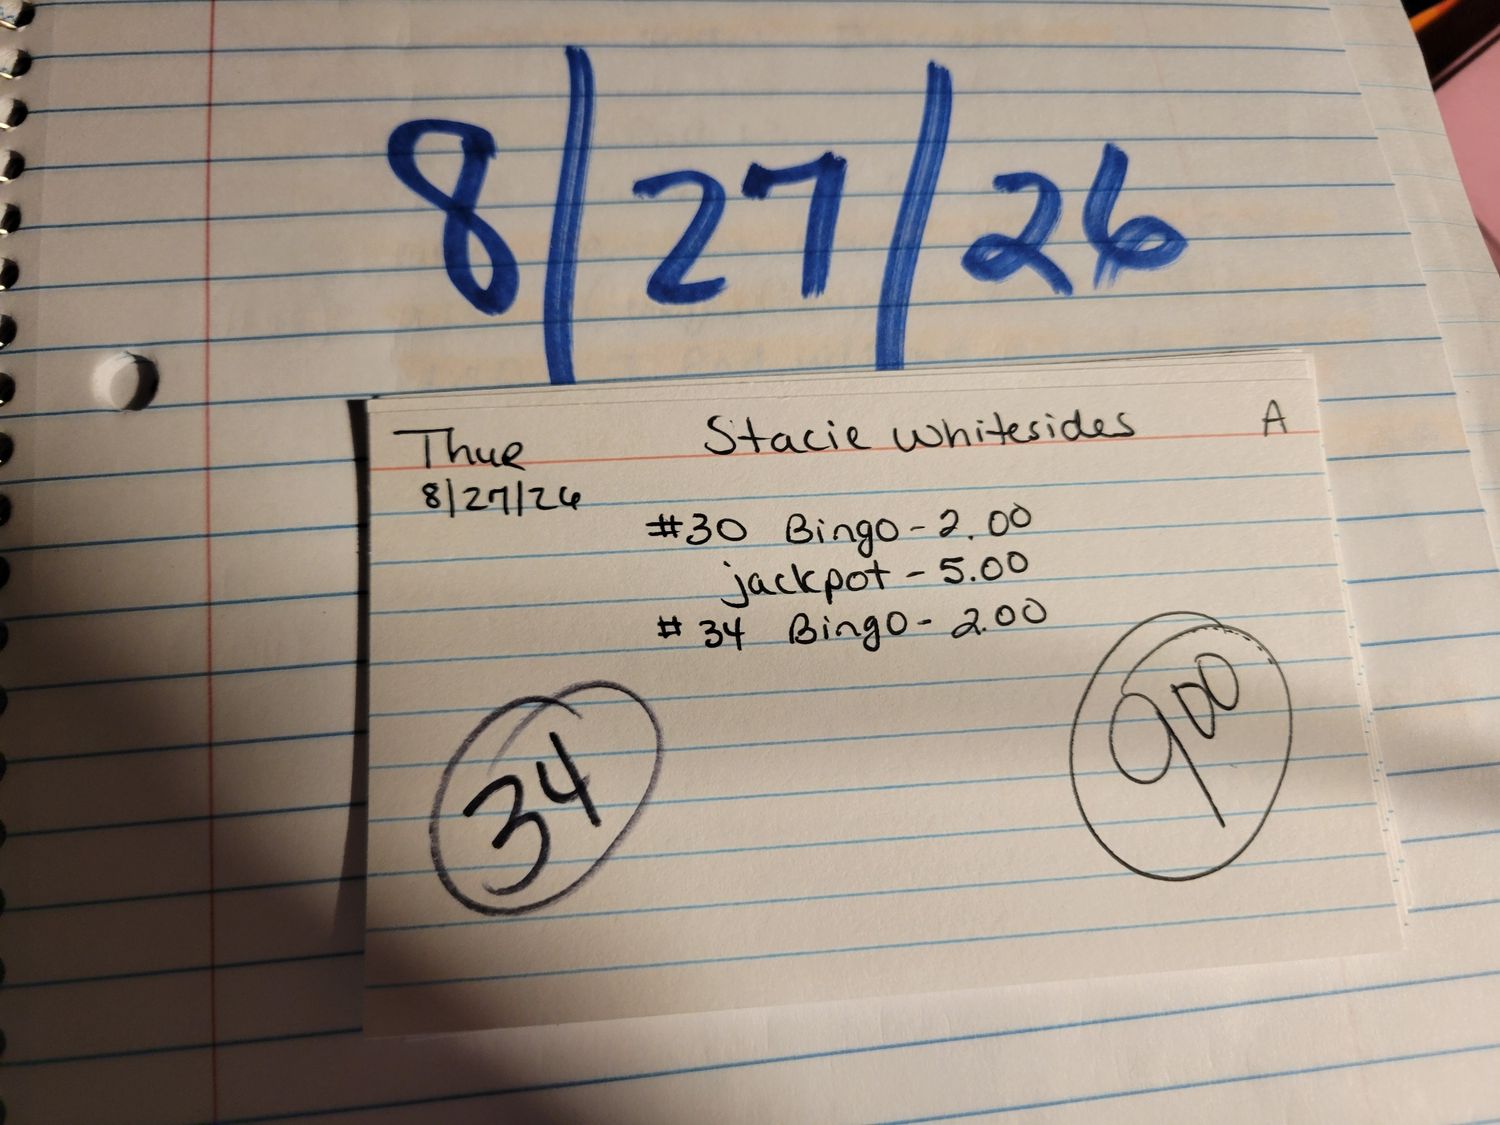 8/27/26
Thur Stacie Whitesides A
8/27/26
#30 Bingo - 2.00
jackpot - 5.00
# 34 Bingo - 2.00
34
900